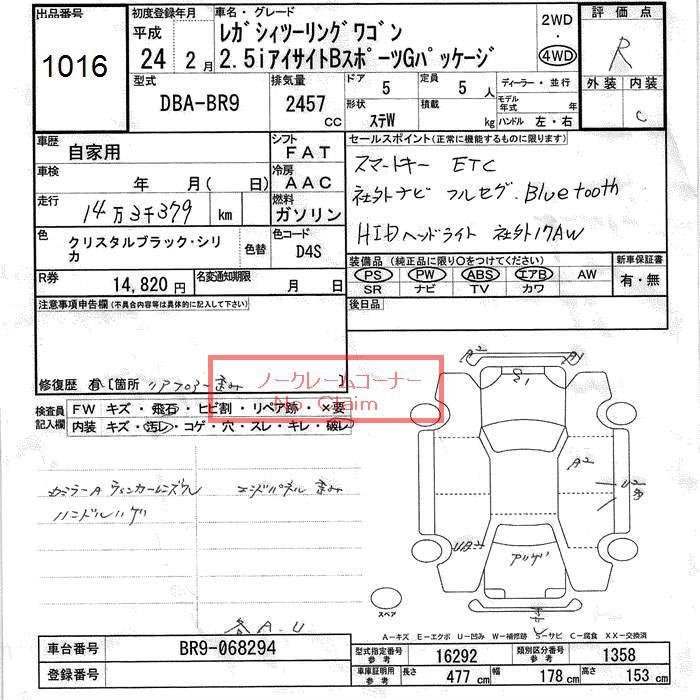 出品番号
1016
初度登録年月
平成
24 2 月
車名・グレード
レガシィツーリングワゴン
2.5iアイサイトBスポーツGパッケージ
2WD
・
4WD
評価点
R
外装 内装
C
型式
DBA-BR9
排気量
2457
CC
ドア
5
定員
5 人
形状
ステW
積載
kg
ディーラー・並行
モデル年式 年
ハンドル 左・右
車歴
自家用
シフト
FAT
車検
年 月( 日)
冷房
AAC
走行
14万3千379 km
燃料
ガソリン
色
クリスタルブラック・シリカ
色替
色コード
D4S
R券
14,820 円
名変通知期限
月 日
セールスポイント(正常に機能するものに限ります)
スマートキー ETC
社外ナビ フルセグ.Bluetooth
HIDヘッドライト 社外17AW
装備品(純正品に限り○をつけてください)
新車保証書
PS PW ABS エアB AW
SR ナビ TV カワ
有・無
後日品
注意事項申告欄(不具合内容等は具体的に記入して下さい)
修復歴 有〔箇所 リアフロアー歪み 〕
ノークレームコーナー
No Claim
検査員記入欄
FW キズ・飛石・ヒビ割・リペア跡・×要
内装 キズ・汚レ・コゲ・穴・スレ・キレ・破レ
カミラーA ウィンカーレンズワレ エンドパネル歪み
ハンドルハゲ
各A.U
A2
A1
S1
A2
U2
UB2
アリゲ
スペア
A-キズ E-エクボ U-凹み W-補修跡 S-サビ C-腐食 XX-交換済
車台番号
BR9-068294
登録番号
型式指定番号
参考
16292
類別区分番号
参考
1358
車庫証明用
参考
長さ 477 cm 幅 178 cm 高さ 153 cm